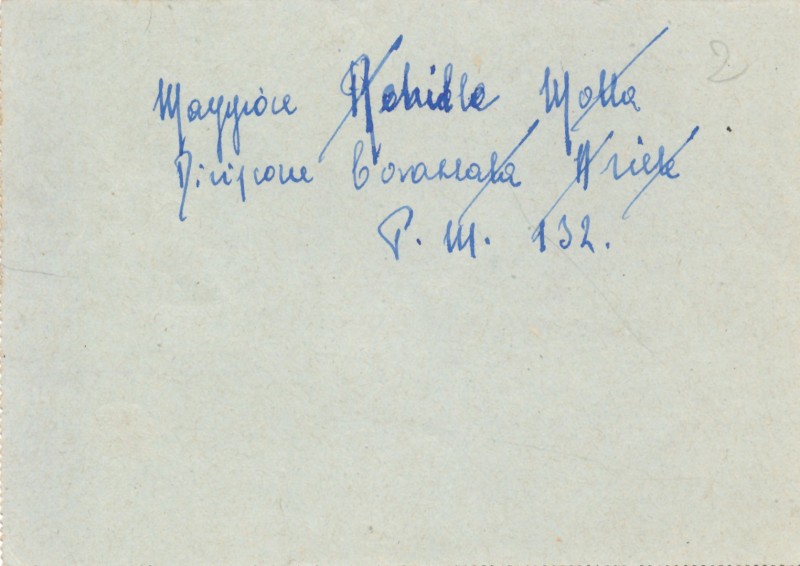 2
Maggiore Achille Motta
Divisione Corazzata Ariete
P. M. 132.